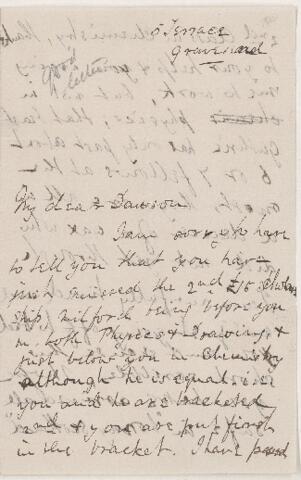 5 Terrace
Gravesend
Good
letter
My dear Dawson
I am sorry to have
to tell you that you have
just missed the 2nd £15 Scholar
ship Milford being before you
in both Physics & Drawing, &
just below you in Chemistry
although he is equal i.e.
you and he are bracketed
2nd & you are put first
in the bracket. I have passed